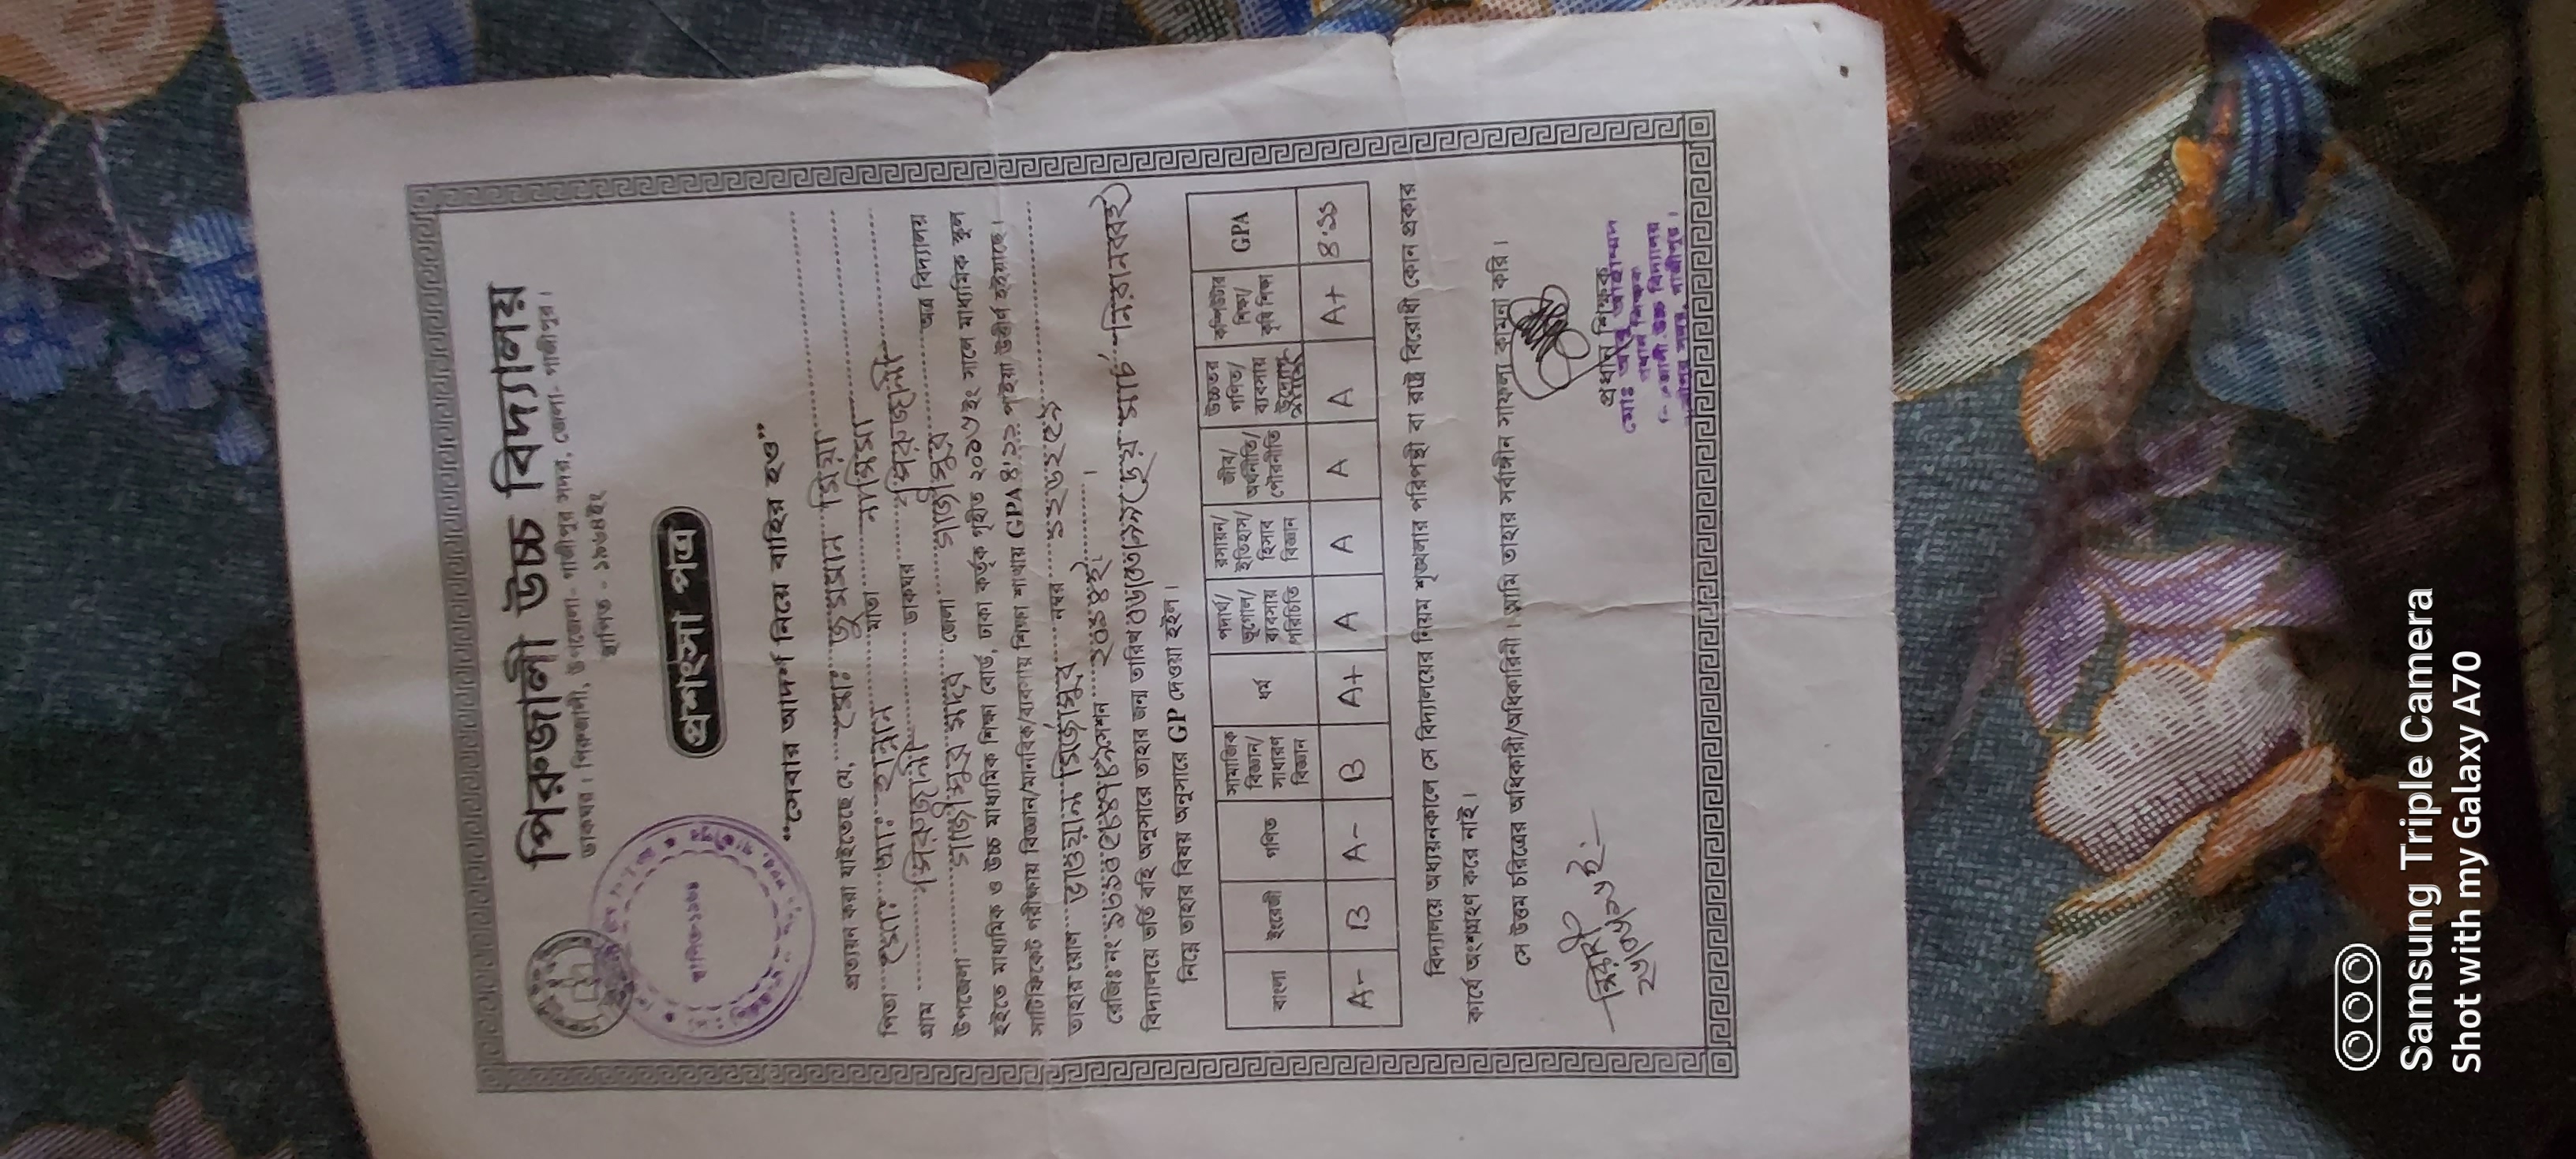 পিরুজালী উচ্চ বিদ্যালয়
ডাকঘর। পিরুজালী, উপজেলা- গাজীপুর সদর, জেলা- গাজীপুর।
স্থাপিত - ১৯৬৪ইং
স্থাপিত-১৯৬৪
প্রশংসা পত্র
“সেবার আদর্শ নিয়ে বাহির হও”
প্রত্যয়ন করা যাইতেছে যে, মোঃ জুমমান মিয়া
পিতা মোঃ আঃ হান্নান মাতা নাসিমা
গ্রাম পিরুজালী ডাকঘর পিরুজালী
উপজেলা গাজীপুর সদর জেলা গাজীপুর অত্র বিদ্যালয়
হইতে মাধ্যমিক ও উচ্চ মাধ্যমিক শিক্ষা বোর্ড, ঢাকা কর্তৃক গৃহীত ২০১৬ইং সালে মাধ্যমিক স্কুল
সার্টিফিকেট পরীক্ষায় বিজ্ঞান/মানবিক/ব্যবসায় শিক্ষা শাখায় GPA ৪.১১ পাইয়া উত্তীর্ণ হইয়াছে।
তাহার রোল ভাওয়াল মির্জাপুর নম্বর ১২৬২৫৯
রেজিঃ নং সেশন ২০১৪ইং।
বিদ্যালয়ে ভর্তি বহি অনুসারে তাহার জন্ম তারিখ ০৬/০৩/৯৯ (ছয় মার্চ নিরানববই)
নিম্নে তাহার বিষয় অনুসারে GP দেওয়া হইল।
বাংলা ইংরেজী গণিত সামাজিক বিজ্ঞান/ সাধারণ বিজ্ঞান ধর্ম পদার্থ/ ভূগোল/ ব্যবসায় পরিচিতি রসায়ন/ ইতিহাস/ হিসাব বিজ্ঞান জীব/ অর্থনীতি/ পৌরনীতি উচ্চতর গণিত/ ব্যবসায় উদ্যোগ কম্পিউটার শিক্ষা/ কৃষি শিক্ষা GPA
A- B A- B A+ A A A A A+ ৪.১১
বিদ্যালয়ে অধ্যয়নকালে সে বিদ্যালয়ের নিয়ম শৃঙ্খলার পরিপন্থী বা রাষ্ট্র বিরোধী কোন প্রকার
কার্যে অংশগ্রহণ করে নাই।
সে উত্তম চরিত্রের অধিকারী/অধিকারিনী। আমি তাহার সর্বাঙ্গীন সাফল্য কামনা করি।
প্রধান শিক্ষক
মোঃ আবু আহাম্মদ
প্রধান শিক্ষক
উচ্চ বিদ্যালয়
সদর, গাজীপুর।
Samsung Triple Camera
Shot with my Galaxy A70